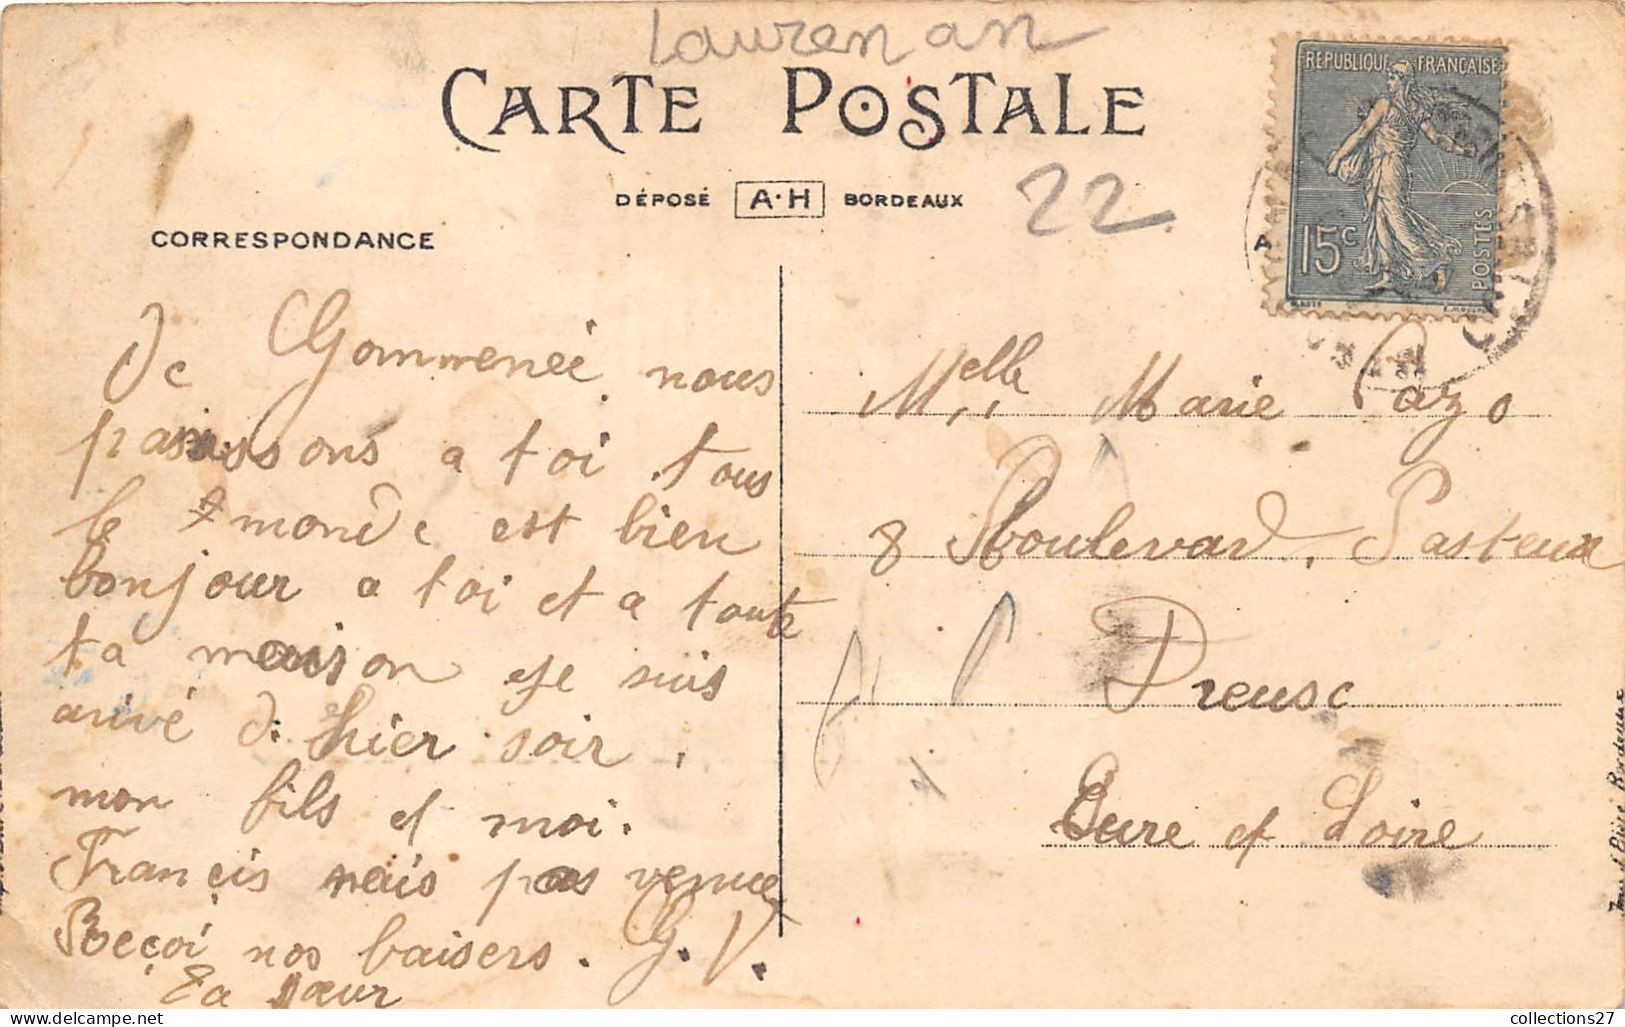 Laurenan
CARTE POSTALE
DÉPOSÉ A·H BORDEAUX
22
CORRESPONDANCE
RÉPUBLIQUE FRANÇAISE
15c
POSTES
De Gommenée nous
passons a toi tous
le monde est bien
bonjour a toi et a toute
ta maison je suis
arivé d. hier soir,
mon fils et moi.
Francis nais pas venue
Reçoi nos baisers. G. V.
Ta sœur
Melle Marie Cazo
8 Boulevard, Pasteur
Dreusc
Eure et Loire
collections27